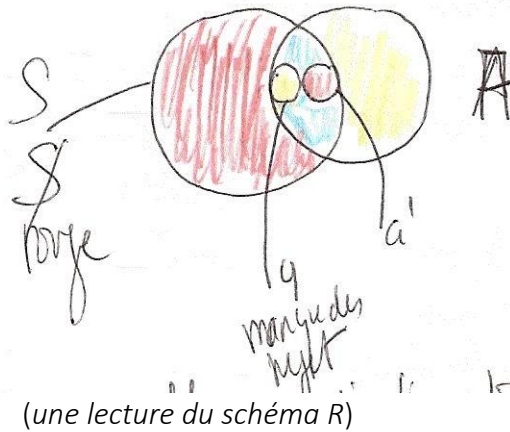 S
A
$
rouge
a'
a
manque des
(une lecture du schéma R)